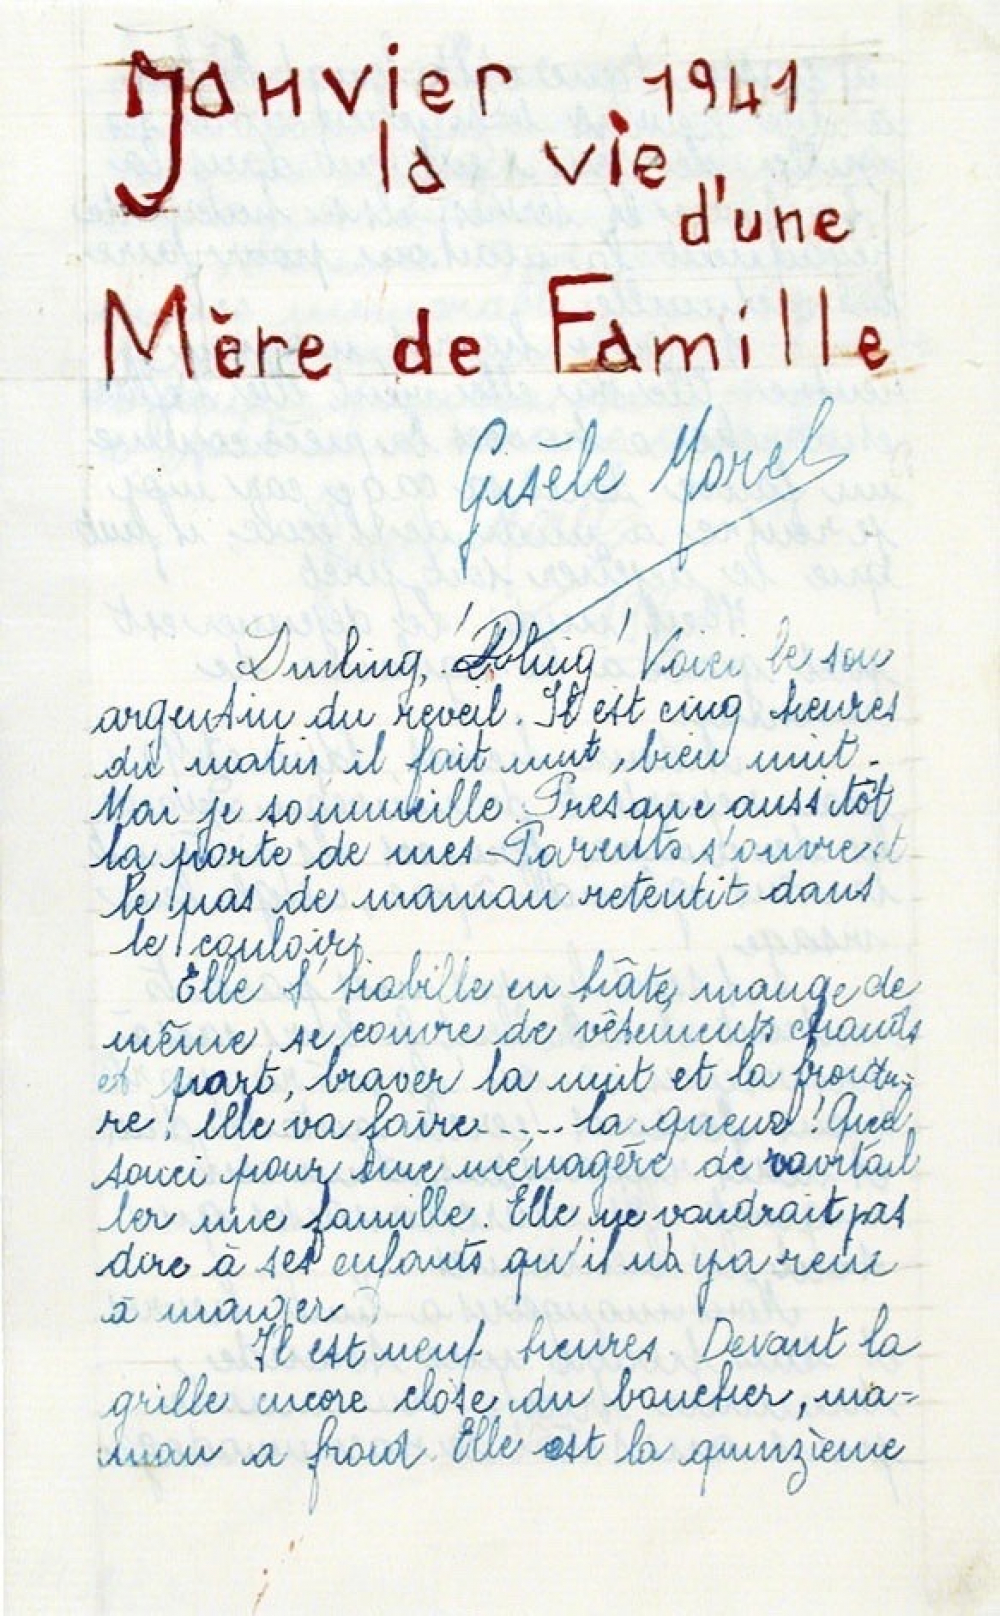 Janvier 1941
la vie
d'une
Mère de Famille
Gisèle Morel
Dreling, ! Dreling ! Voici le son
argentin du réveil. Il est cinq heures
du matin il fait nuit, bien nuit.
Moi je sommeille. Presque aussitôt
la porte de mes Parents s'ouvre et
le pas de maman retentit dans
le couloir.
Elle s'habille en hâte, mange de
même, se couvre de vêtements chauds
et part, braver la nuit et la froidu-
re! elle va faire..... la queue! Quel
souci pour une ménagère de ravitail
ler une famille. Elle ne voudrait pas
dire à ses enfants qu'il n'a y a rien
à manger
Il est neuf heures. Devant la
grille encore close du boucher, ma=
man a froid. Elle est la quinzième